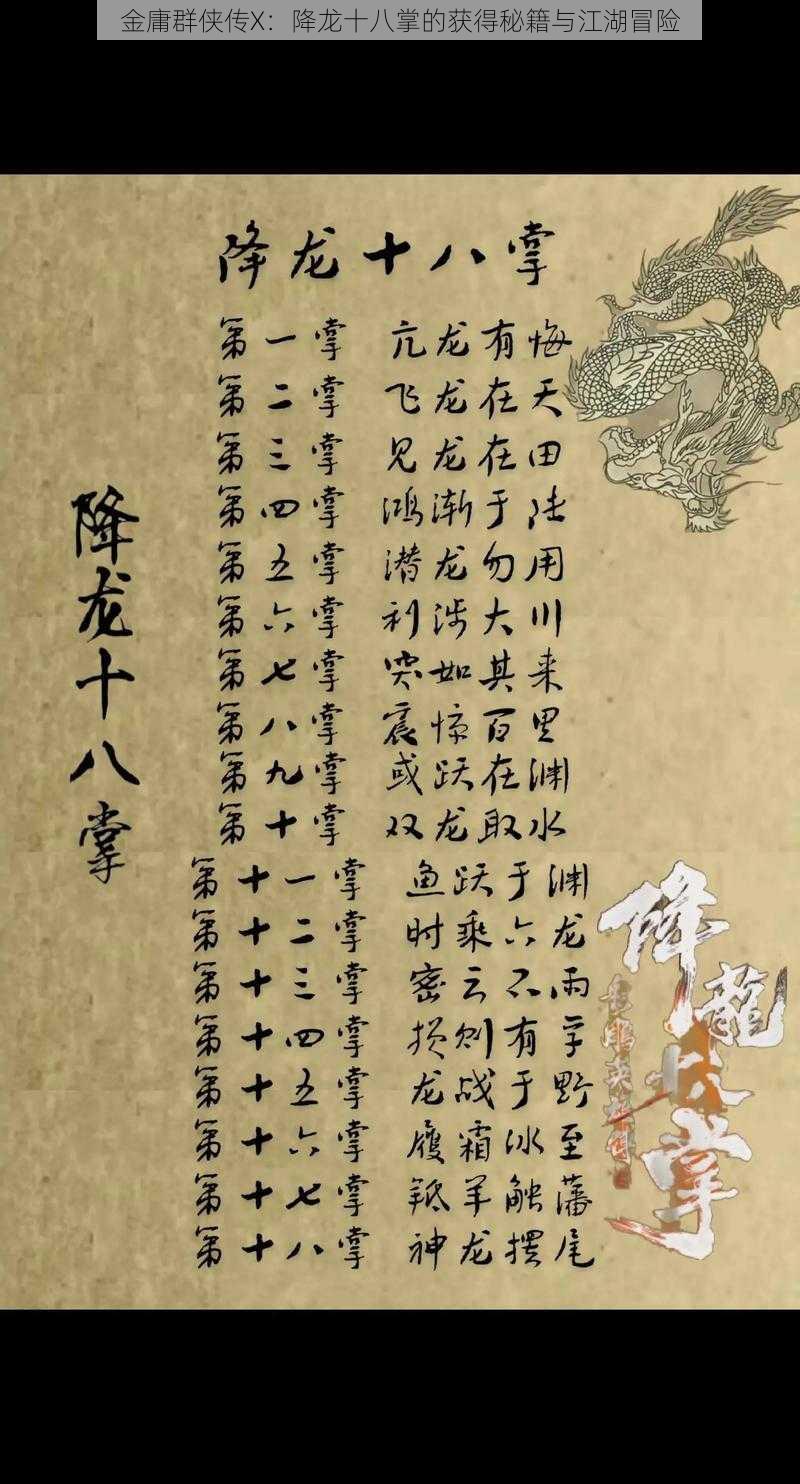 金庸群侠传X：降龙十八掌的获得秘籍与江湖冒险
降龙十八掌
第一掌 亢龙有悔
第二掌 飞龙在天
第三掌 见龙在田
第四掌 鸿渐于陆
第五掌 潜龙勿用
第六掌 利涉大川
第七掌 突如其来
第八掌 震惊百里
第九掌 或跃在渊
第十掌 双龙取水
第十一掌 鱼跃于渊
第十二掌 时乘六龙
第十三掌 密云不雨
第十四掌 损则有孚
第十五掌 龙战于野
第十六掌 履霜冰至
第十七掌 羝羊触藩
第十八掌 神龙摆尾
降龙十八掌
降龍
掌